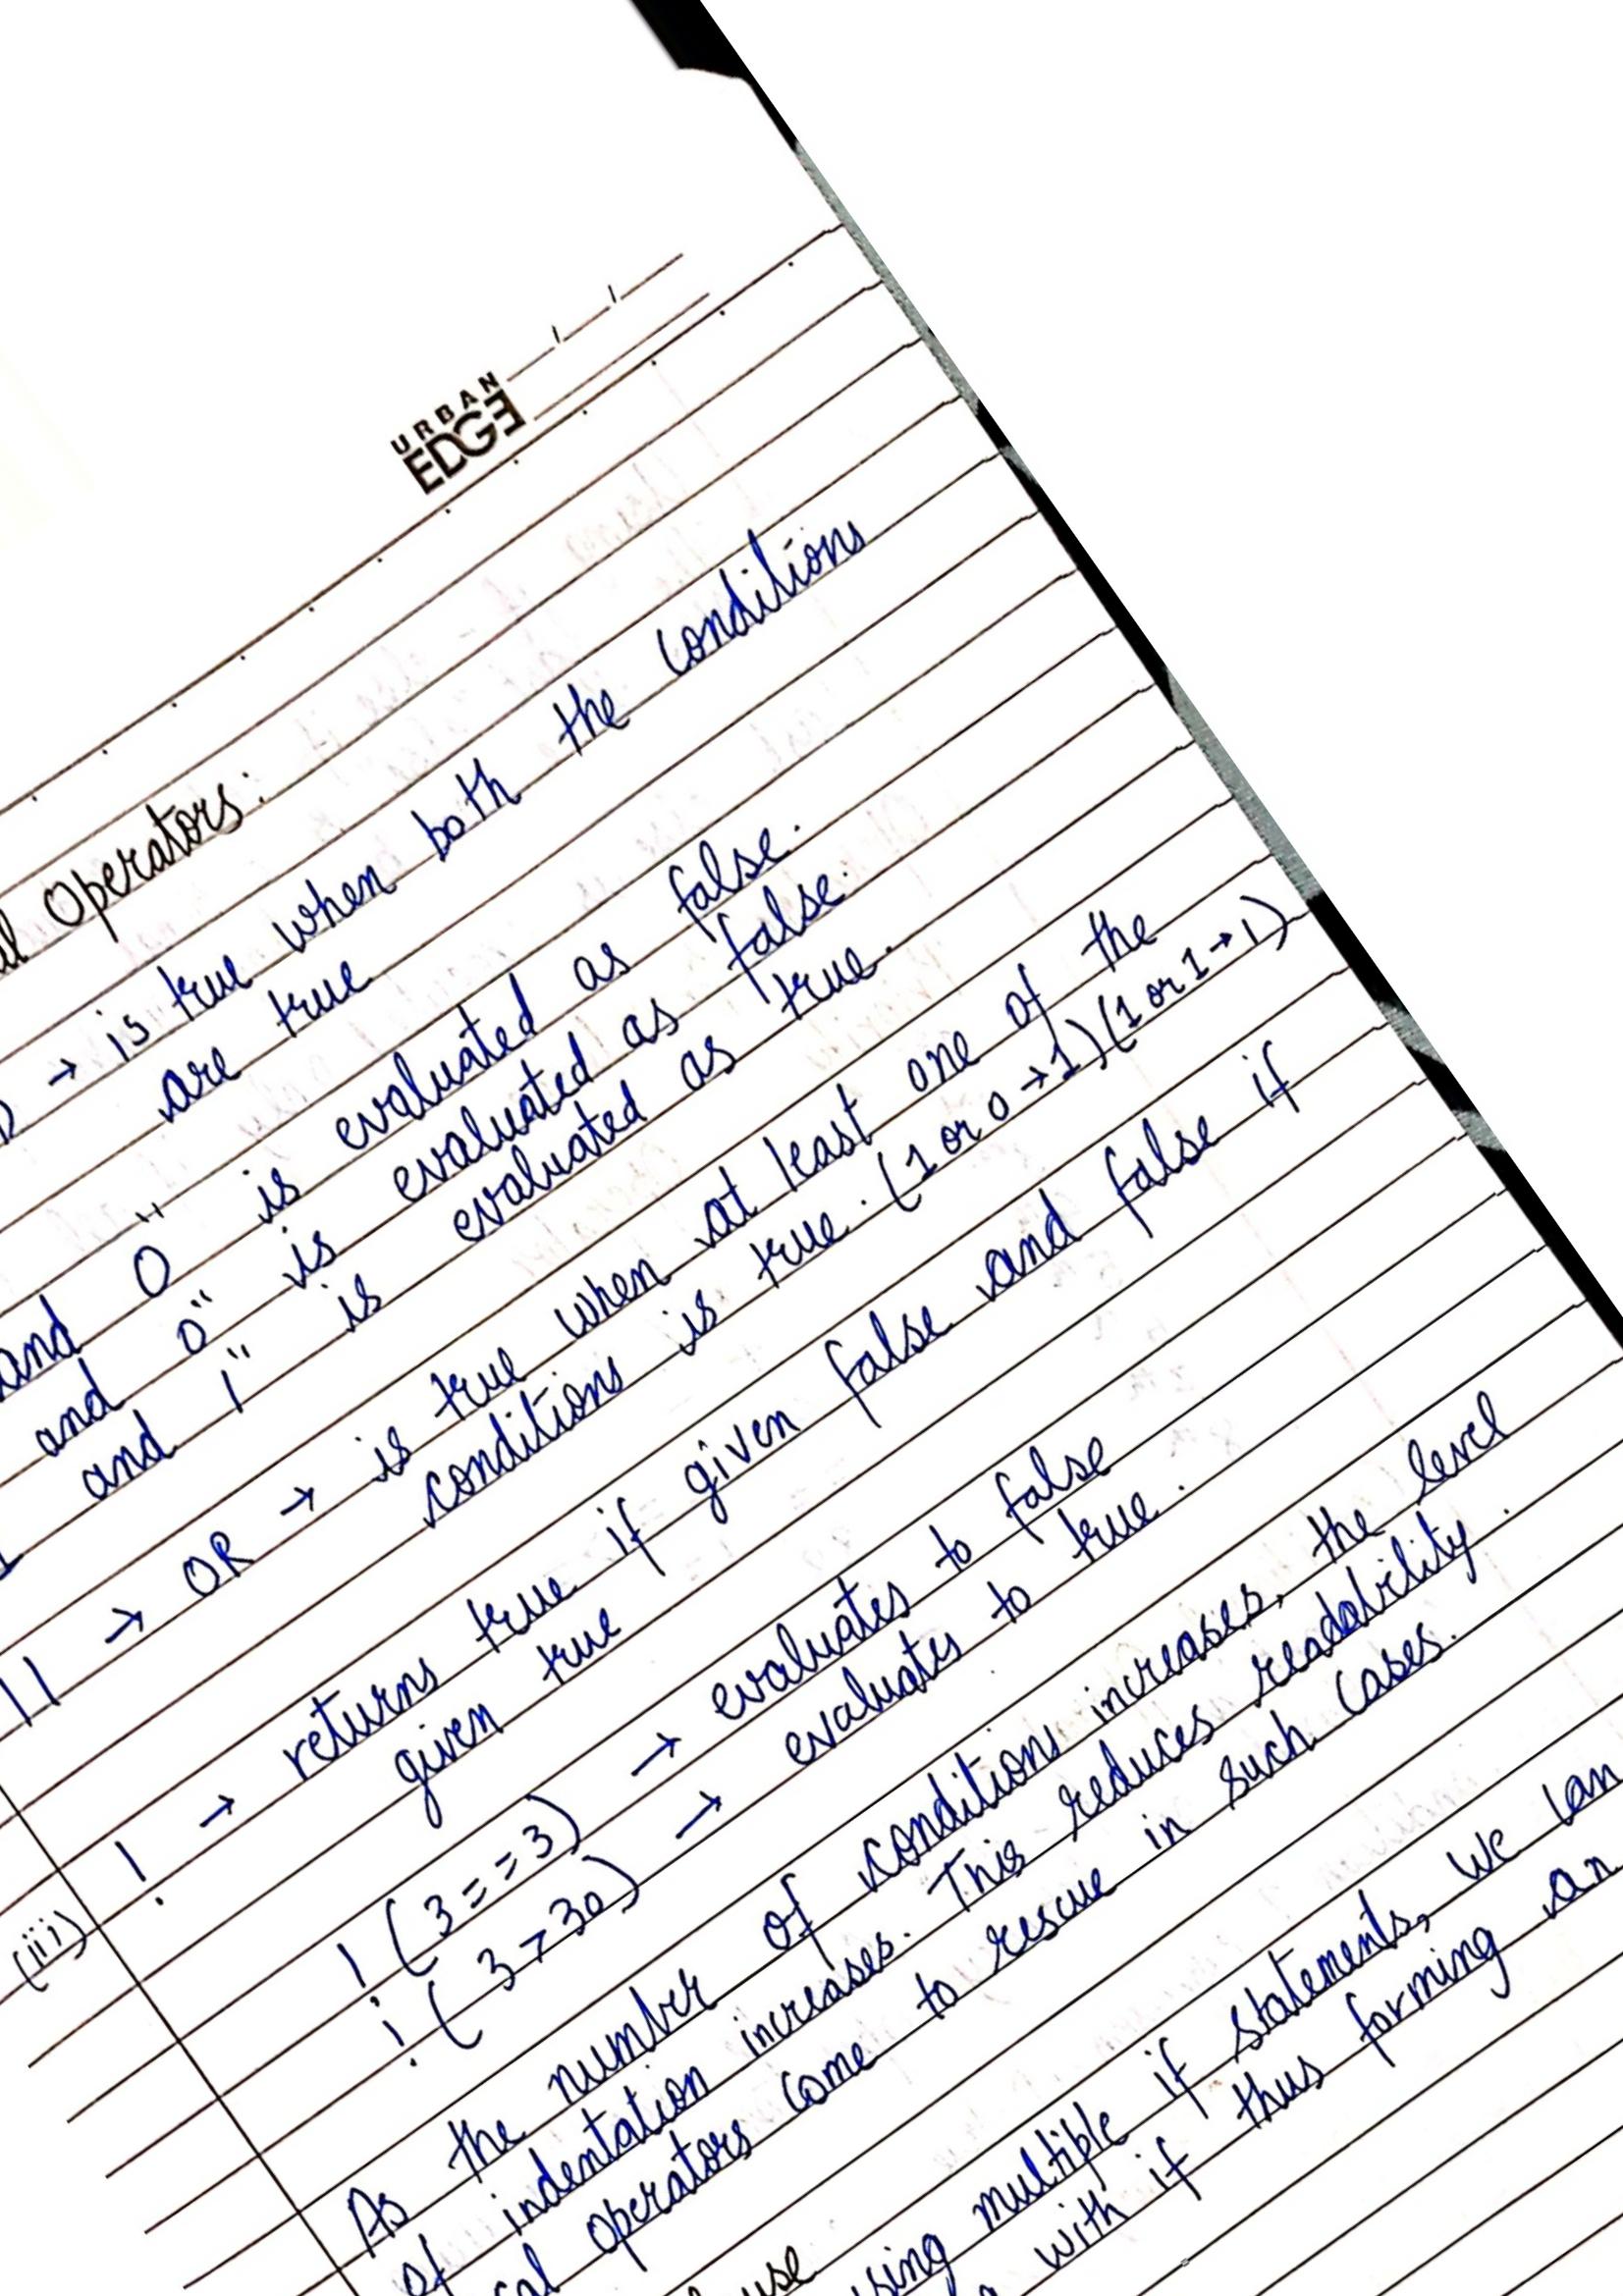 URBAN
EDGE
Operators:
→ is true when both the conditions
are true
and 0" is evaluated as false.
and 0" is evaluated as false.
and 1" is evaluated as true.
|| → OR → is true when at least one of the
conditions is true. (1 or 0 → 1) (1 or 1 → 1)
(iii) ! → returns true if given false and false if
given true
! (3==3) → evaluates to false
! (3>30) → evaluates to true.
As the number of conditions increases, the level
of indentation increases. This reduces readability.
operators come to rescue in such cases.
multiple if statements, we can
with if thus forming an